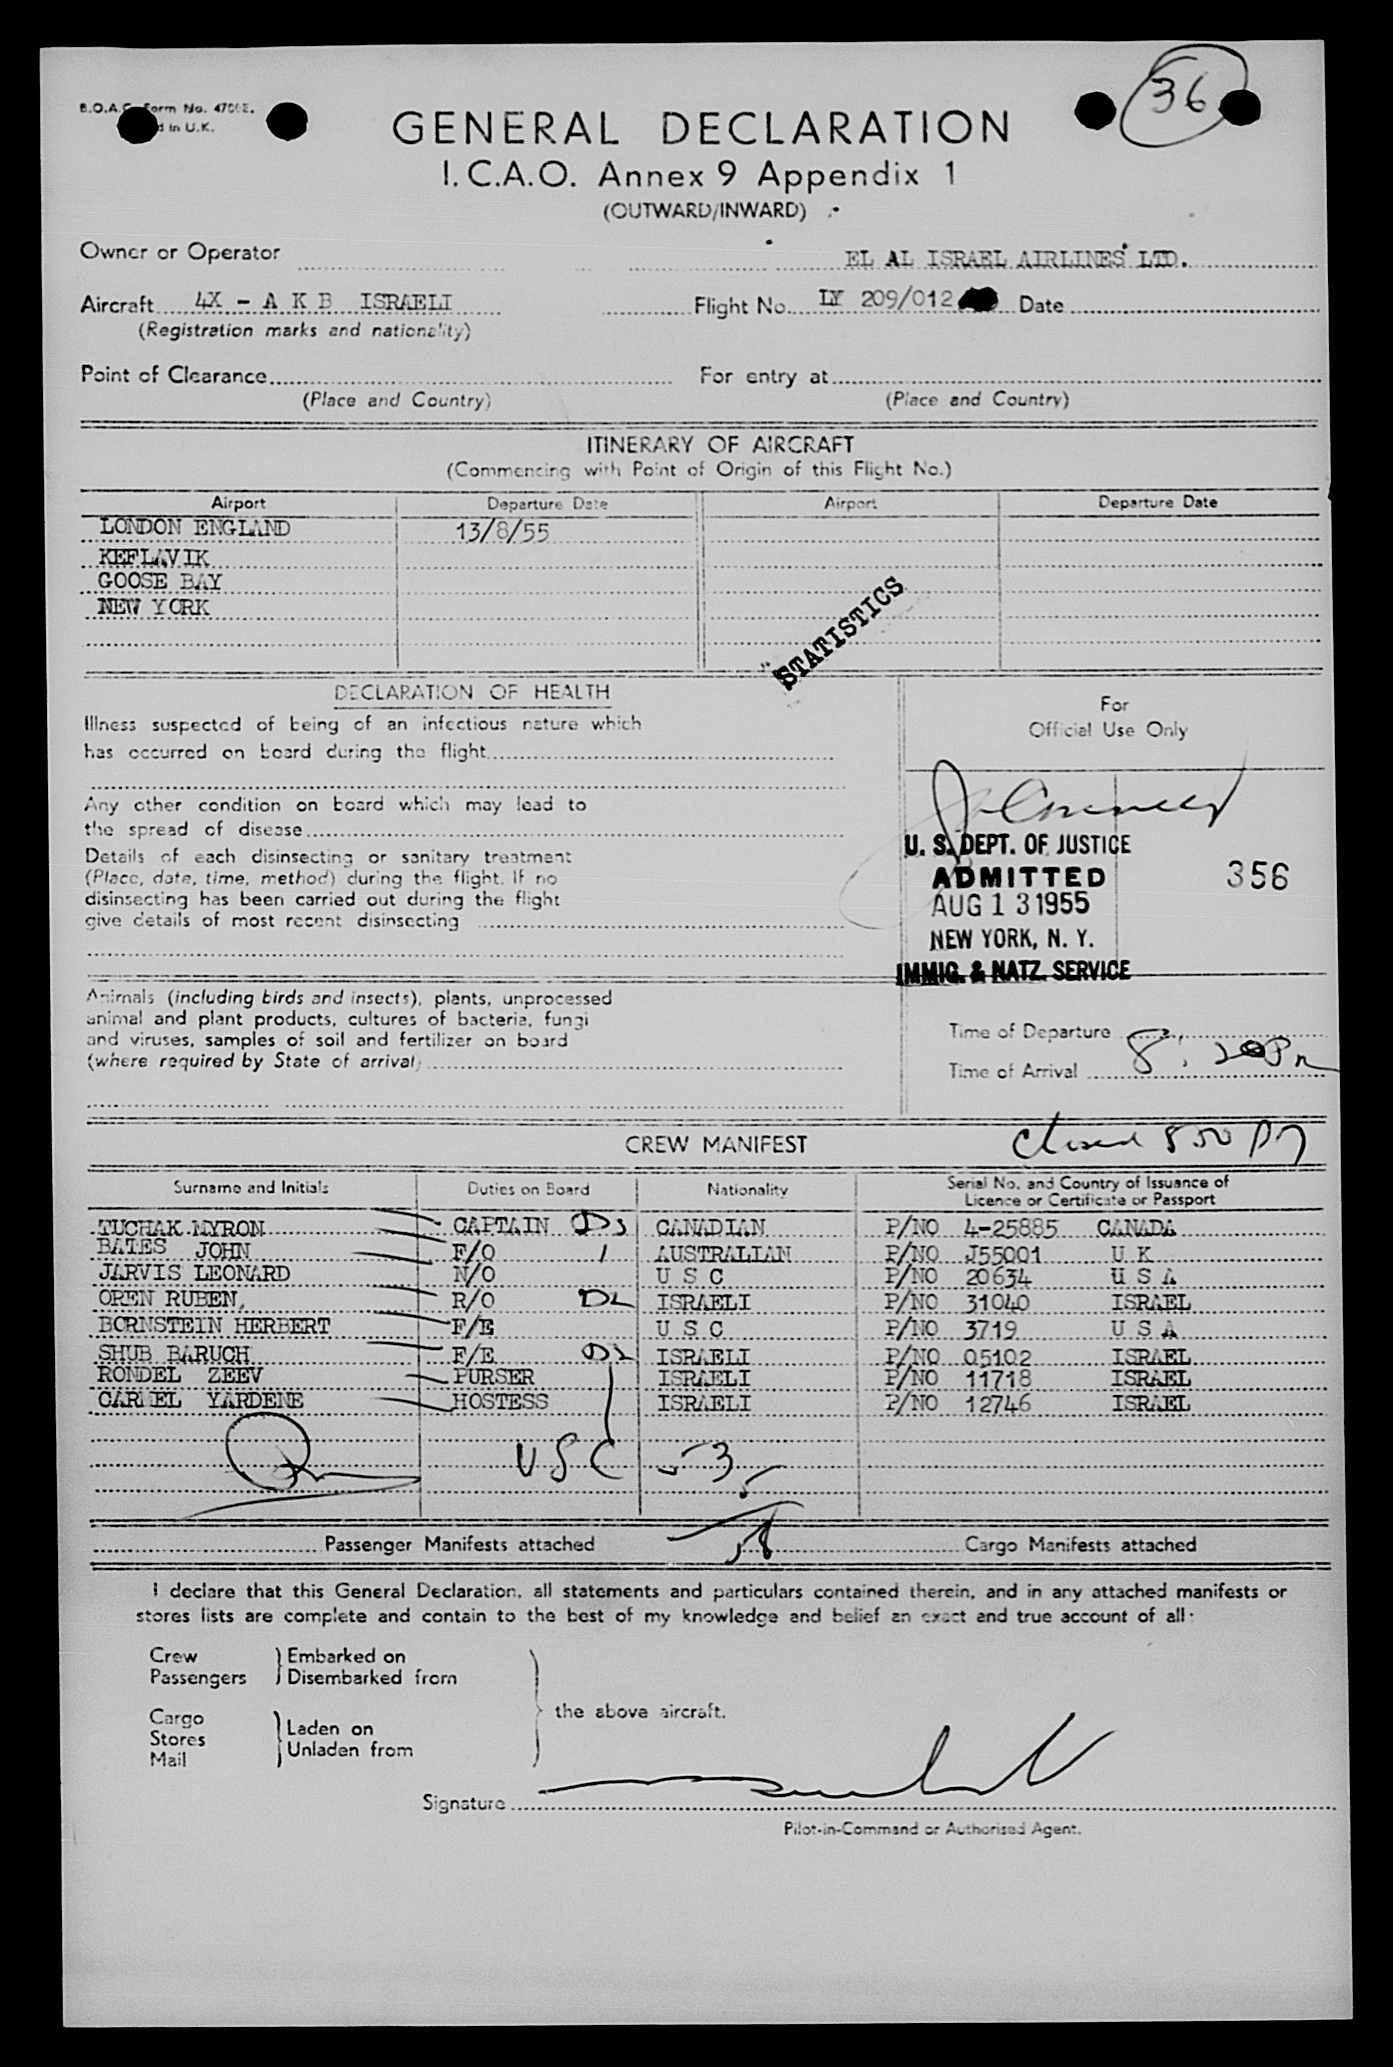 36
B.O.A.C. Form No.
in U.K.
GENERAL DECLARATION
I.C.A.O. Annex 9 Appendix 1
(OUTWARD/INWARD)
Owner or Operator EL AL ISRAEL AIRLINES LTD.
Aircraft 4X - A K B ISRAELI Flight No. LY 209/012 Date
(Registration marks and nationality)
Point of Clearance For entry at
(Place and Country) (Place and Country)
ITINERARY OF AIRCRAFT
(Commencing with Point of Origin of this Flight No.)
Airport Departure Date Airport Departure Date
LONDON ENGLAND 13/8/55
KEFLAVIK
GOOSE BAY
NEW YORK
STATISTICS
DECLARATION OF HEALTH
Illness suspected of being of an infectious nature which
has occurred on board during the flight
Any other condition on board which may lead to
the spread of disease
Details of each disinsecting or sanitary treatment
(Place, date, time, method) during the flight. If no
disinsecting has been carried out during the flight
give details of most recent disinsecting
For
Official Use Only
U. S. DEPT. OF JUSTICE
ADMITTED 356
AUG 13 1955
NEW YORK, N. Y.
IMMIG. & NATZ. SERVICE
Animals (including birds and insects), plants, unprocessed
animal and plant products, cultures of bacteria, fungi
and viruses, samples of soil and fertilizer on board
(where required by State of arrival)
Time of Departure
Time of Arrival 8:20 Pm
CREW MANIFEST
Closed 850 PM
Surname and Initials Duties on Board Nationality Serial No. and Country of Issuance of
Licence or Certificate or Passport
TUCHAK MYRON CAPTAIN CANADIAN P/NO 4-25885 CANADA
BATES JOHN F/O AUSTRALIAN P/NO J55001 U K
JARVIS LEONARD N/O U S C P/NO 20634 U S A
OREN RUBEN, R/O ISRAELI P/NO 31040 ISRAEL
BORNSTEIN HERBERT F/E U S C P/NO 3719 U S A
SHUB BARUCH F/E ISRAELI P/NO 05102 ISRAEL
RONDEL ZEEV PURSER ISRAELI P/NO 11718 ISRAEL
CARMEL YARDENE HOSTESS ISRAELI P/NO 12746 ISRAEL
USC - 3
Passenger Manifests attached Cargo Manifests attached
I declare that this General Declaration, all statements and particulars contained therein, and in any attached manifests or
stores lists are complete and contain to the best of my knowledge and belief an exact and true account of all:
Crew } Embarked on
Passengers } Disembarked from
the above aircraft.
Cargo
Stores } Laden on
Mail } Unladen from
Signature
Pilot-in-Command or Authorised Agent.